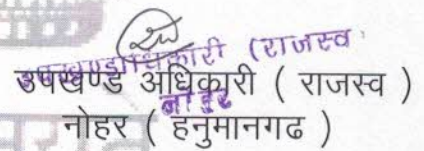 उपखण्डाधिकारी (राजस्व)
उपखण्ड अधिकारी ( राजस्व )
नोहर
नोहर ( हनुमानगढ )